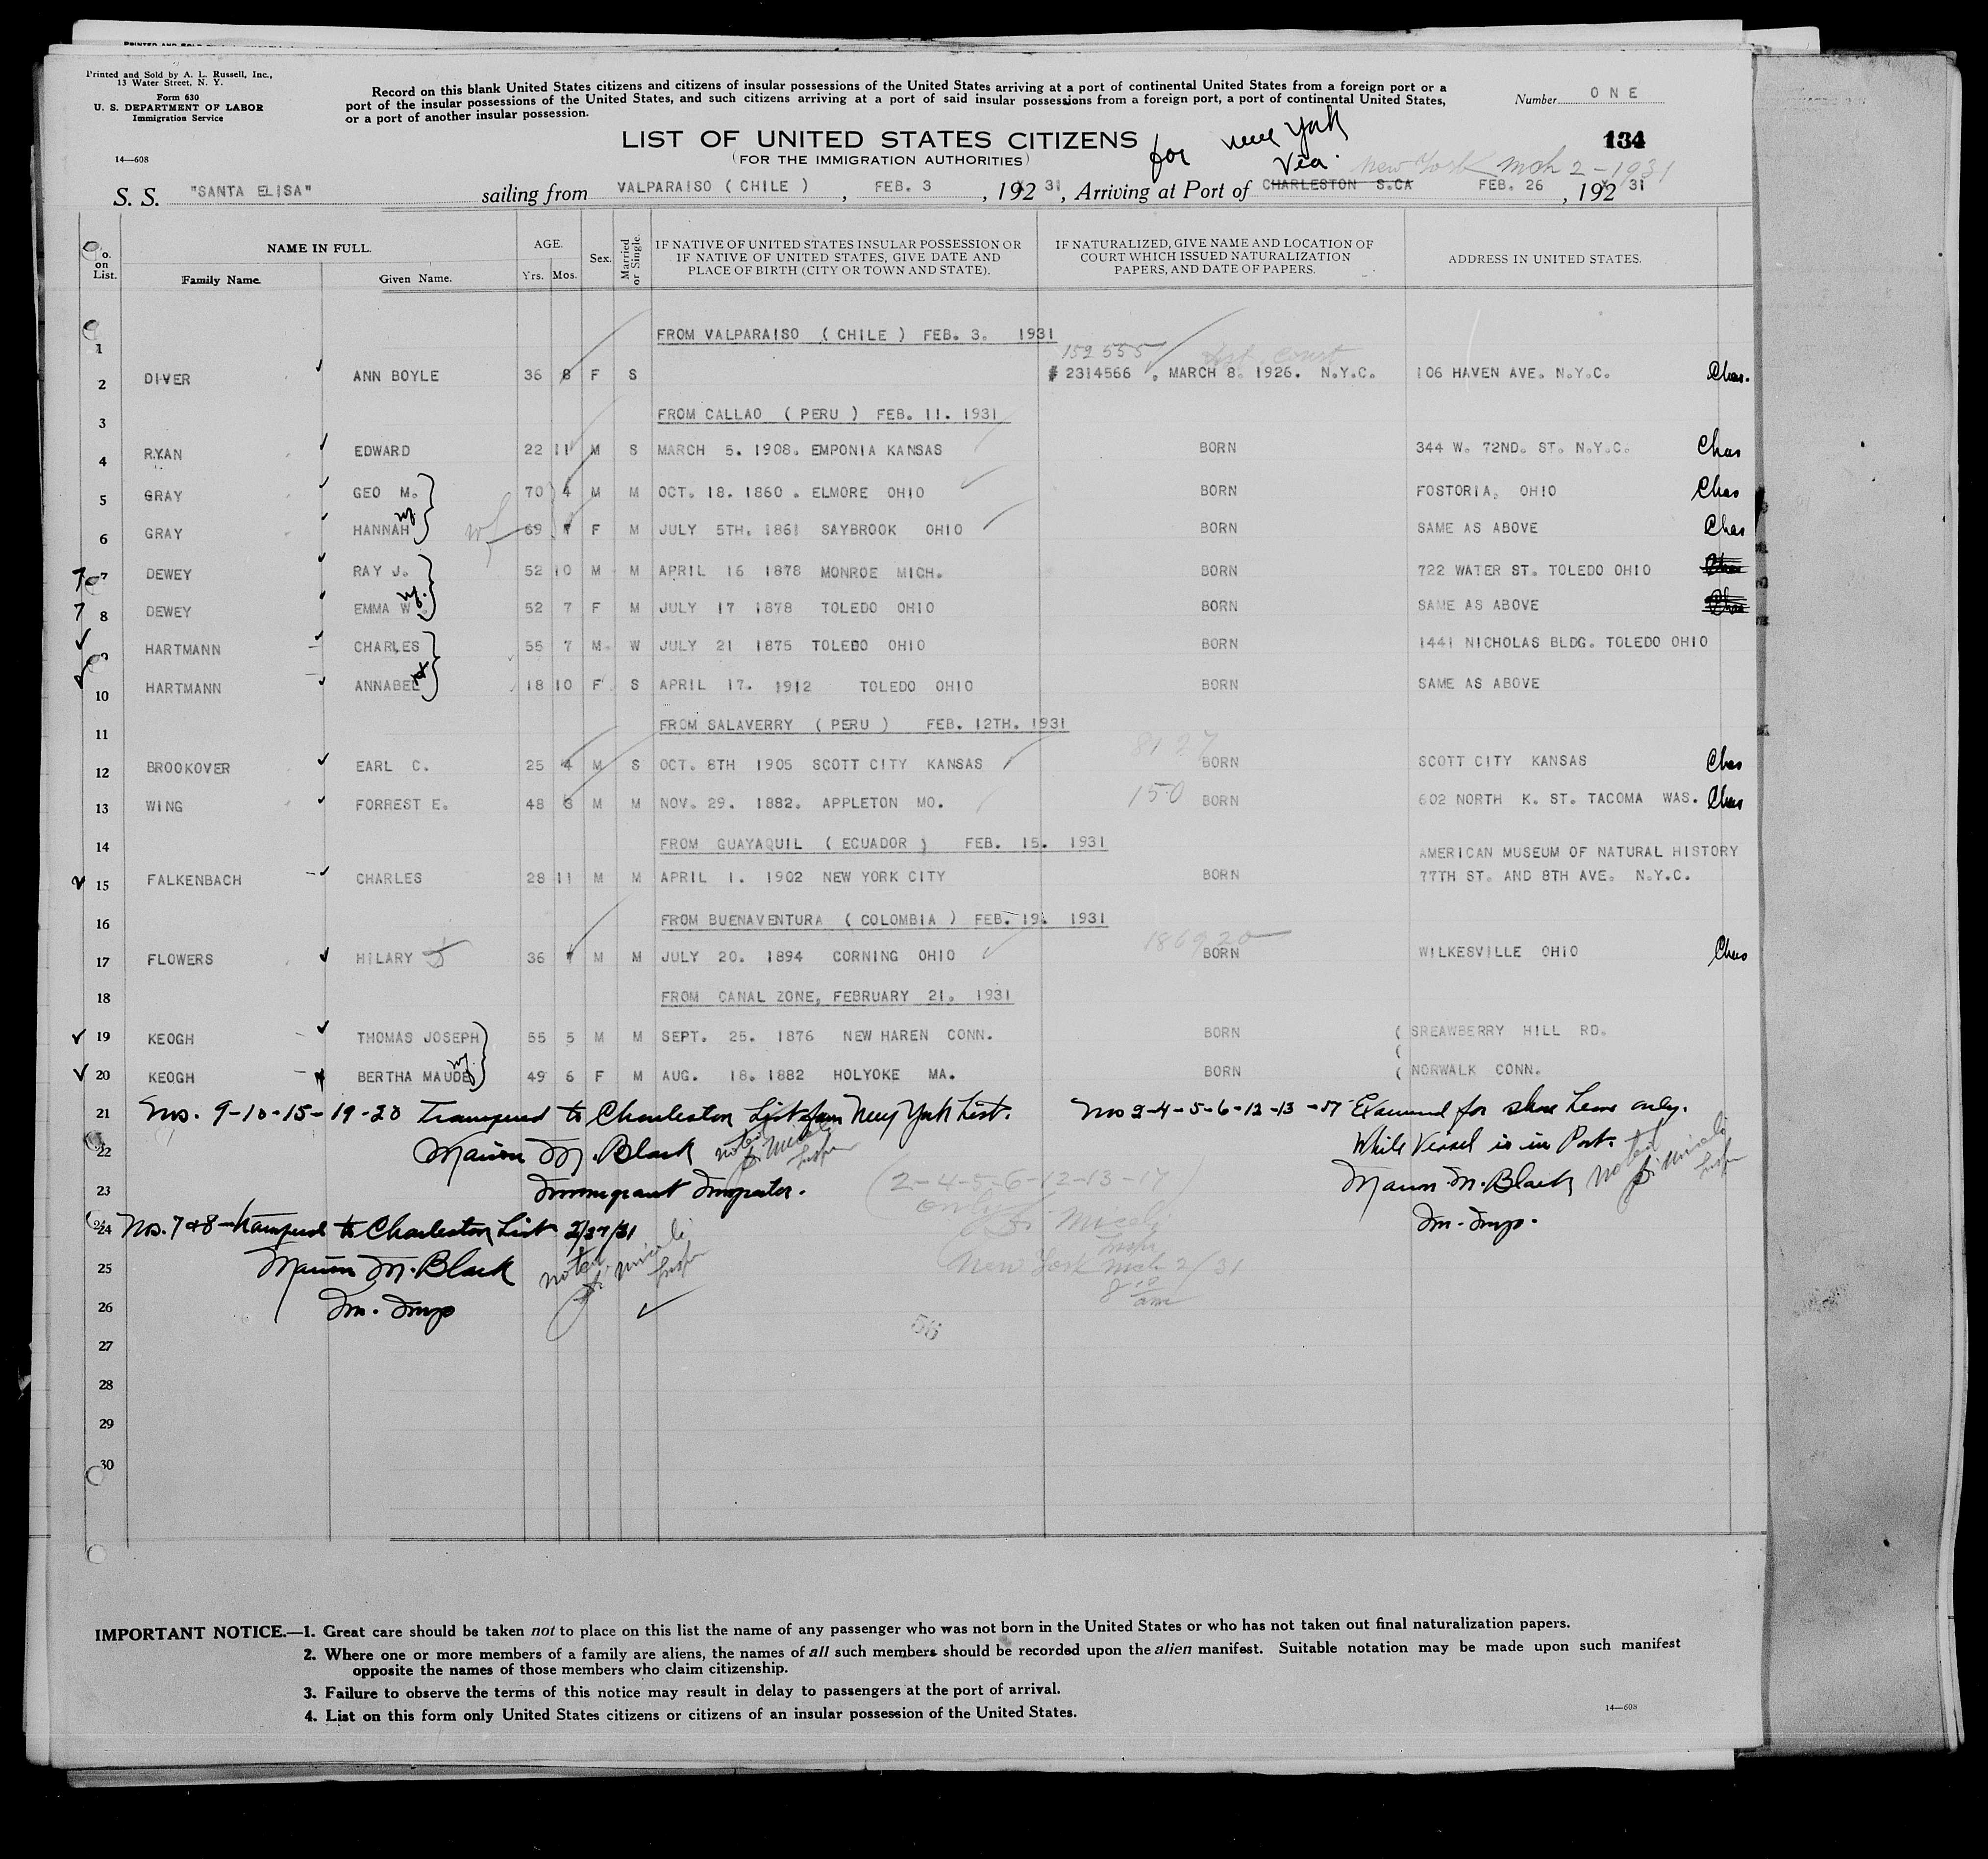 Printed and Sold by A. L. Russell, Inc.,
13 Water Street, N. Y.
Form 630
U. S. DEPARTMENT OF LABOR
Immigration Service
14—608
Record on this blank United States citizens and citizens of insular possessions of the United States arriving at a port of continental United States from a foreign port or a
port of the insular possessions of the United States, and such citizens arriving at a port of said insular possessions from a foreign port, a port of continental United States,
or a port of another insular possession.
Number ONE
134
LIST OF UNITED STATES CITIZENS
(FOR THE IMMIGRATION AUTHORITIES)
for New York
Via.
New York Mch 2-1931
S. S. "SANTA ELISA" sailing from VALPARAISO ( CHILE ), FEB. 3, 192 31, Arriving at Port of CHARLESTON S.CA FEB. 26, 192 31
No. on List.
NAME IN FULL.
Family Name.
Given Name.
AGE.
Yrs. Mos.
Sex.
Married or Single.
IF NATIVE OF UNITED STATES INSULAR POSSESSION OR
IF NATIVE OF UNITED STATES, GIVE DATE AND
PLACE OF BIRTH (CITY OR TOWN AND STATE).
IF NATURALIZED, GIVE NAME AND LOCATION OF
COURT WHICH ISSUED NATURALIZATION
PAPERS, AND DATE OF PAPERS.
ADDRESS IN UNITED STATES.
1 FROM VALPARAISO ( CHILE ) FEB. 3. 1931
152555
2 DIVER ANN BOYLE 36 8 F S # 2314566 , MARCH 8. 1926. N.Y.C. 106 HAVEN AVE. N.Y.C. Chas.
3 FROM CALLAO ( PERU ) FEB. 11. 1931
4 RYAN EDWARD 22 11 M S MARCH 5. 1908. EMPONIA KANSAS BORN 344 W. 72ND. ST. N.Y.C. Chas
5 GRAY GEO M. 70 4 M M OCT. 18. 1860 . ELMORE OHIO BORN FOSTORIA, OHIO Chas
6 GRAY HANNAH wf 69 7 F M JULY 5TH. 1861 SAYBROOK OHIO BORN SAME AS ABOVE Chas
7 DEWEY RAY J. 52 10 M M APRIL 16 1878 MONROE MICH. BORN 722 WATER ST. TOLEDO OHIO
8 DEWEY EMMA W. wf. 52 7 F M JULY 17 1878 TOLEDO OHIO BORN SAME AS ABOVE
9 HARTMANN CHARLES 55 7 M W JULY 21 1875 TOLEDO OHIO BORN 1441 NICHOLAS BLDG. TOLEDO OHIO
10 HARTMANN ANNABEL 18 10 F S APRIL 17. 1912 TOLEDO OHIO BORN SAME AS ABOVE
11 FROM SALAVERRY ( PERU ) FEB. 12TH. 1931
12 BROOKOVER EARL C. 25 4 M S OCT. 8TH 1905 SCOTT CITY KANSAS BORN SCOTT CITY KANSAS Chas
13 WING FORREST E. 48 3 M M NOV. 29. 1882. APPLETON MO. 150 BORN 602 NORTH K. ST. TACOMA WAS. Chas
14 FROM GUAYAQUIL ( ECUADOR ) FEB. 15. 1931
AMERICAN MUSEUM OF NATURAL HISTORY
15 FALKENBACH CHARLES 28 11 M M APRIL 1. 1902 NEW YORK CITY BORN 77TH ST. AND 8TH AVE. N.Y.C.
16 FROM BUENAVENTURA ( COLOMBIA ) FEB. 19. 1931
186920
17 FLOWERS HILARY J 36 7 M M JULY 20. 1894 CORNING OHIO BORN WILKESVILLE OHIO Chas
18 FROM CANAL ZONE, FEBRUARY 21. 1931
19 KEOGH THOMAS JOSEPH 55 5 M M SEPT. 25. 1876 NEW HAREN CONN. BORN ( SREAWBERRY HILL RD.
(
20 KEOGH BERTHA MAUDE wf. 49 6 F M AUG. 18. 1882 HOLYOKE MA. BORN ( NORWALK CONN.
21 Nos. 9-10-15-19-20 Transferred to Charleston List from New York List. Nos 2-4-5-6-12-13-17 Examined for shore leave only.
22 Marion M. Black noted While Vessel is in Port.
23 Immigrant Inspector. (2-4-5-6-12-13-17) Marion M. Black noted
only
Im. Insp.
24 Nos. 7&8 transferred to Charleston List 2/27/31
25 Marion M. Black noted New York Mch 2/31
26 Im. Insp 8 10 am
56
27
28
29
30
IMPORTANT NOTICE.—1. Great care should be taken not to place on this list the name of any passenger who was not born in the United States or who has not taken out final naturalization papers.
2. Where one or more members of a family are aliens, the names of all such members should be recorded upon the alien manifest. Suitable notation may be made upon such manifest
opposite the names of those members who claim citizenship.
3. Failure to observe the terms of this notice may result in delay to passengers at the port of arrival.
4. List on this form only United States citizens or citizens of an insular possession of the United States.
14—608